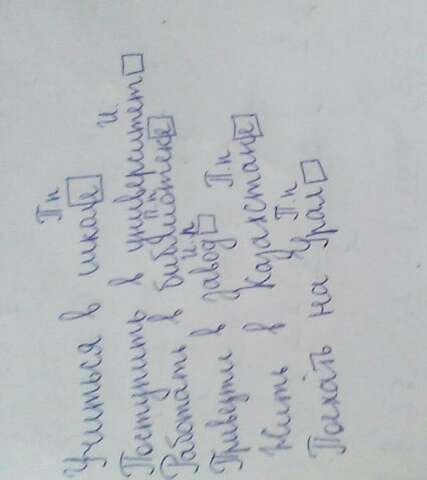 П п
Учиться в школе
И.
Поступить в университет
п.п
Работать в библиотеке
и.п
Привезти в завод
П.п
Жить в Казахстане
П.п
Поехать на Урал